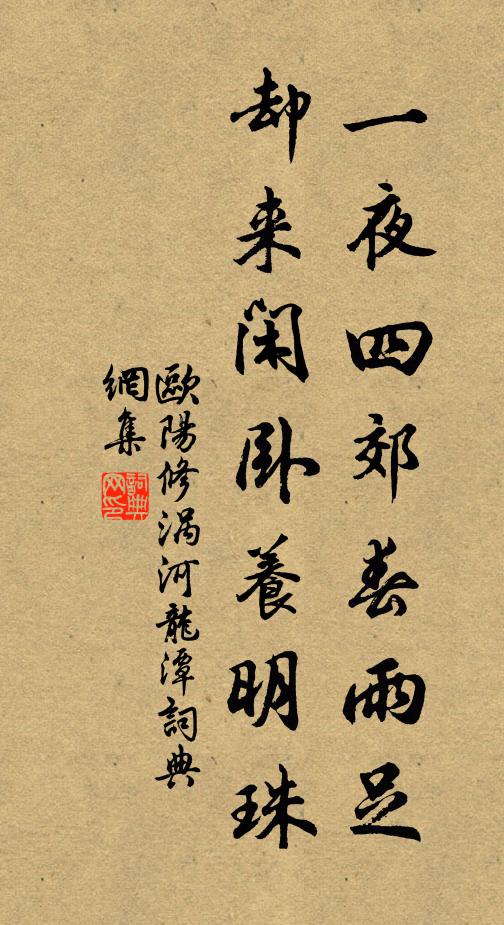 一夜四郊春雨足
却来闲卧養明珠
歐陽修涡河龍潭詞典
網集
詞典
网印